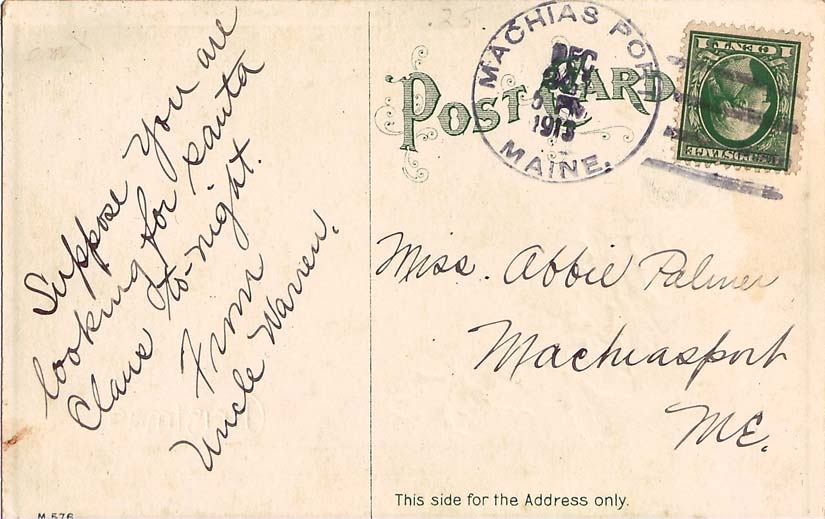 Suppose You are
looking for santa
Claus to-night.
From
Uncle Warren.
POST CARD
MACHIAS PORT
DEC
24
5 PM
1913
MAINE.
Miss. Abbie Palmer
Machiasport
ME.
This side for the Address only.
M 576